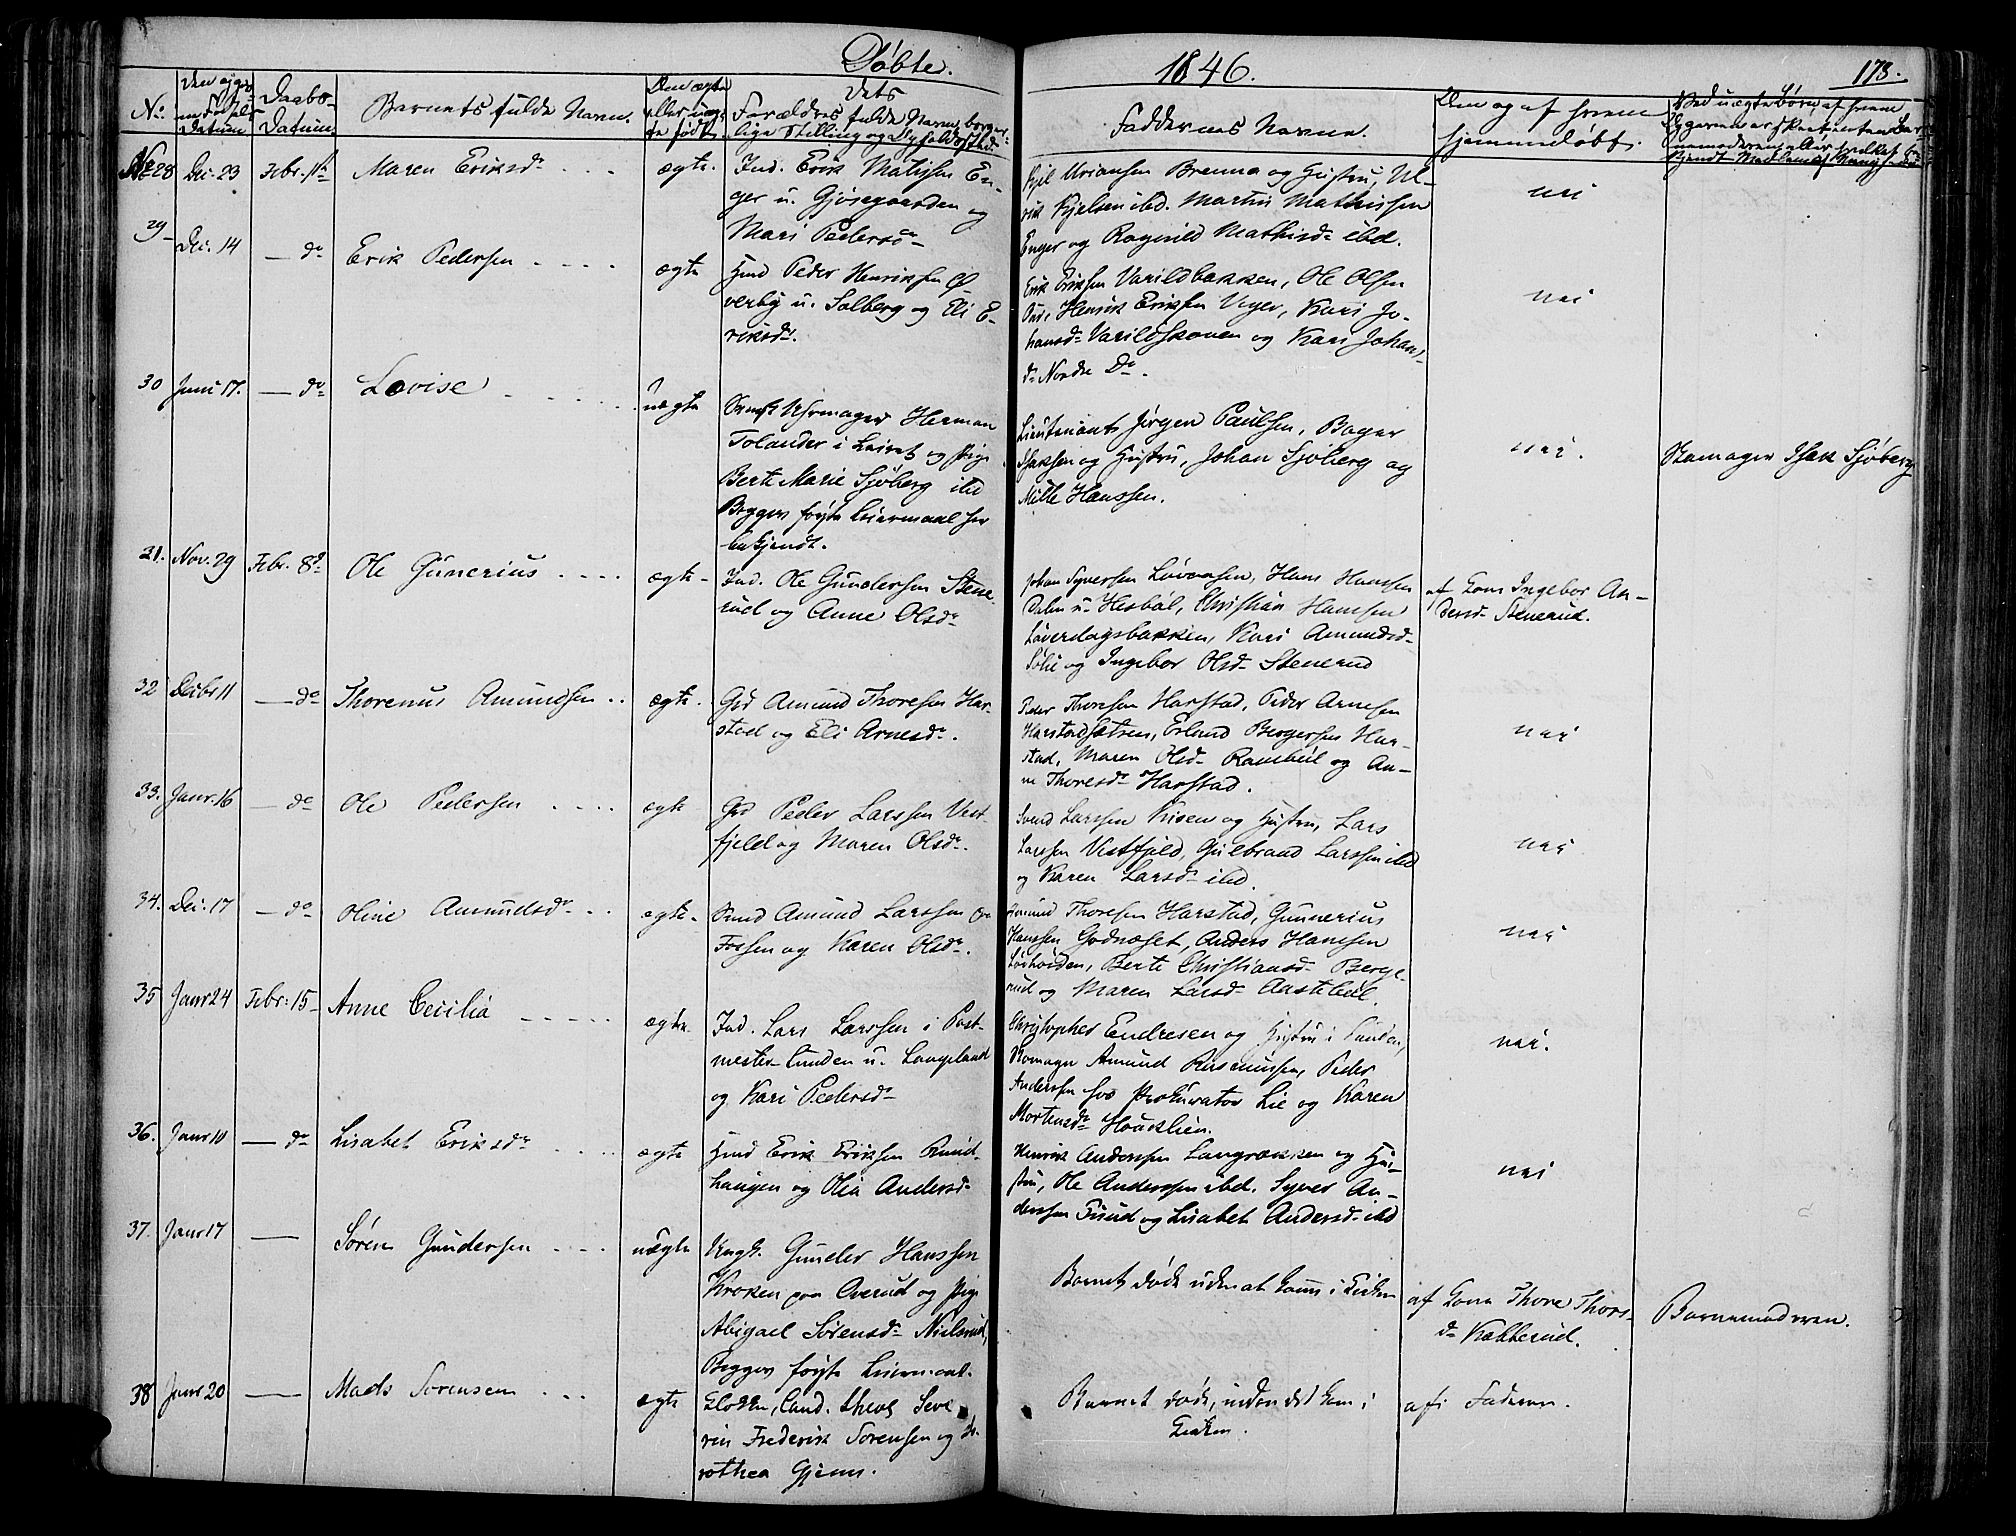 Døbte.
1846.
173.
No.
Daabs-
Datum
Barnets fulde Navn.
Dets
Forældres fulde Navn, borger-
lige Stilling og Opholdssted.
Faddernes Navne.
hjemmedøbt.
28 Dec. 23 Febr. 1ste Maren Eriksdr ægte. Ind. Erik Mathisen En-
ger u. Gjøsegaarden og
Mari Pedersdr
Kjel Uriansen Brenna og Hustru, Ul-
rik Kjelsen ibd. Martin Mathissen
Enger og Ragnild Mathisdr ibd.
nei
29 Dec. 14 — do Erik Pedersen ægte Hmd Peder Henriksen Ø-
verby u. Solberg og Eli E-
riksdr.
Erik Eriksen Varildbakken, Ole Olsen
Henrik Eriksen Kari Jo-
hansdr Varildskoven og Kari Johans-
dr Nordre Do.
nei
30 Juni 17. — do Lovise uægte Svensk Uhrmager Herman
Tolander i Leiret og Pige
Berte Marie Sjøberg ibd
Begges første Leiermaal saa
bekjendt.
Lieutenants Jørgen Paulsen, Bager
Isaksen og Hustru, Johan Sjøberg og
Mille Hanssen.
nei.
Skomager Isak Sjøberg
31. Nov. 29 Febr. 8de Ole Gunerius ægte Ind. Ole Gundersen Stene-
rud og Anne Olsdr
Johan Syversen Løvaasen, Hans Hanssen
Dalen u. Hesbøl, Christian Hanssen
Løverdagsbakken, Kari Amundsdr
Sølie og Ingebor Olsdr Stenerud
af Konen Ingebor An-
dersdr Stenerud.
32 Decbr 11 — do Thorenus Amundsen ægte. Grd Amund Thoresen Har-
stad og Eli Arnesdr.
Peder Thoresen Harstad, Peder Arnesen
Harstadsætren, Erland Bergersen Har-
stad, Maren Olsdr Rambøl og An-
ne Thoresdr Harstad.
nei
33. Janr. 16 — do Ole Pedersen ægte Grd Peder Larssen Vest-
fjeld og Maren Olsdr.
Svend Larssen Risen og Hustru, Lars
Larssen Vestfjeld, Gulbrand Larssen ibd
og Karen Larsdr ibd.
nei
34. Dec. 17 — do Oline Amundsdr ægte. Amund Larssen
Fossen og Karen Olsdr.
Amund Thoresen Harstad, Gunnerius
Hanssen Godnæset, Anders Hanssen
Berte Christiansdr Berge-
rud og Maren Larsdr Austbøl.
nei
35 Janr 24 Febr. 15 Anne Cecilia ægte. Ind. Lars Larssen i Post-
mester Lunden u. Langeland
og Kari Pedersdr
Christopher Endresen og Hustru i Lunden,
Skomager Amund Rasmussen, Peder
Anderssen hos Prokurator Lie og Karen
Mortensdr Houcklien.
nei.
36. Janr 10 — do Lisabet Eriksdr ægte Hmd Erik Eriksen Rund-
haugen og Olia Andersdr
Henrik Anderssen Langrækken og Hu-
stru, Ole Anderssen ibd. Syver An-
derssen Tusud og Lisabet Andersdr ibd
nei
37. Janr 17 — Søren Gundersen uægte Ungk. Gunder Hanssen
Kroken paa Overud og Pige
Abigael Sørensdr Nielsrud,
Begges første Leiermaal.
Barnet døde uden at komme i Kirken
af Konen Thore Thors-
dr Kokkerud.
Barnemoderen.
38 Janr 20 — Mads Sørensen ægte Klokker, Cand. theol Seve-
rin Frederik Sørensen og Do-
rothea Gjems.
Barnet døde, inden det kom i
Kirken.
af Faderen.